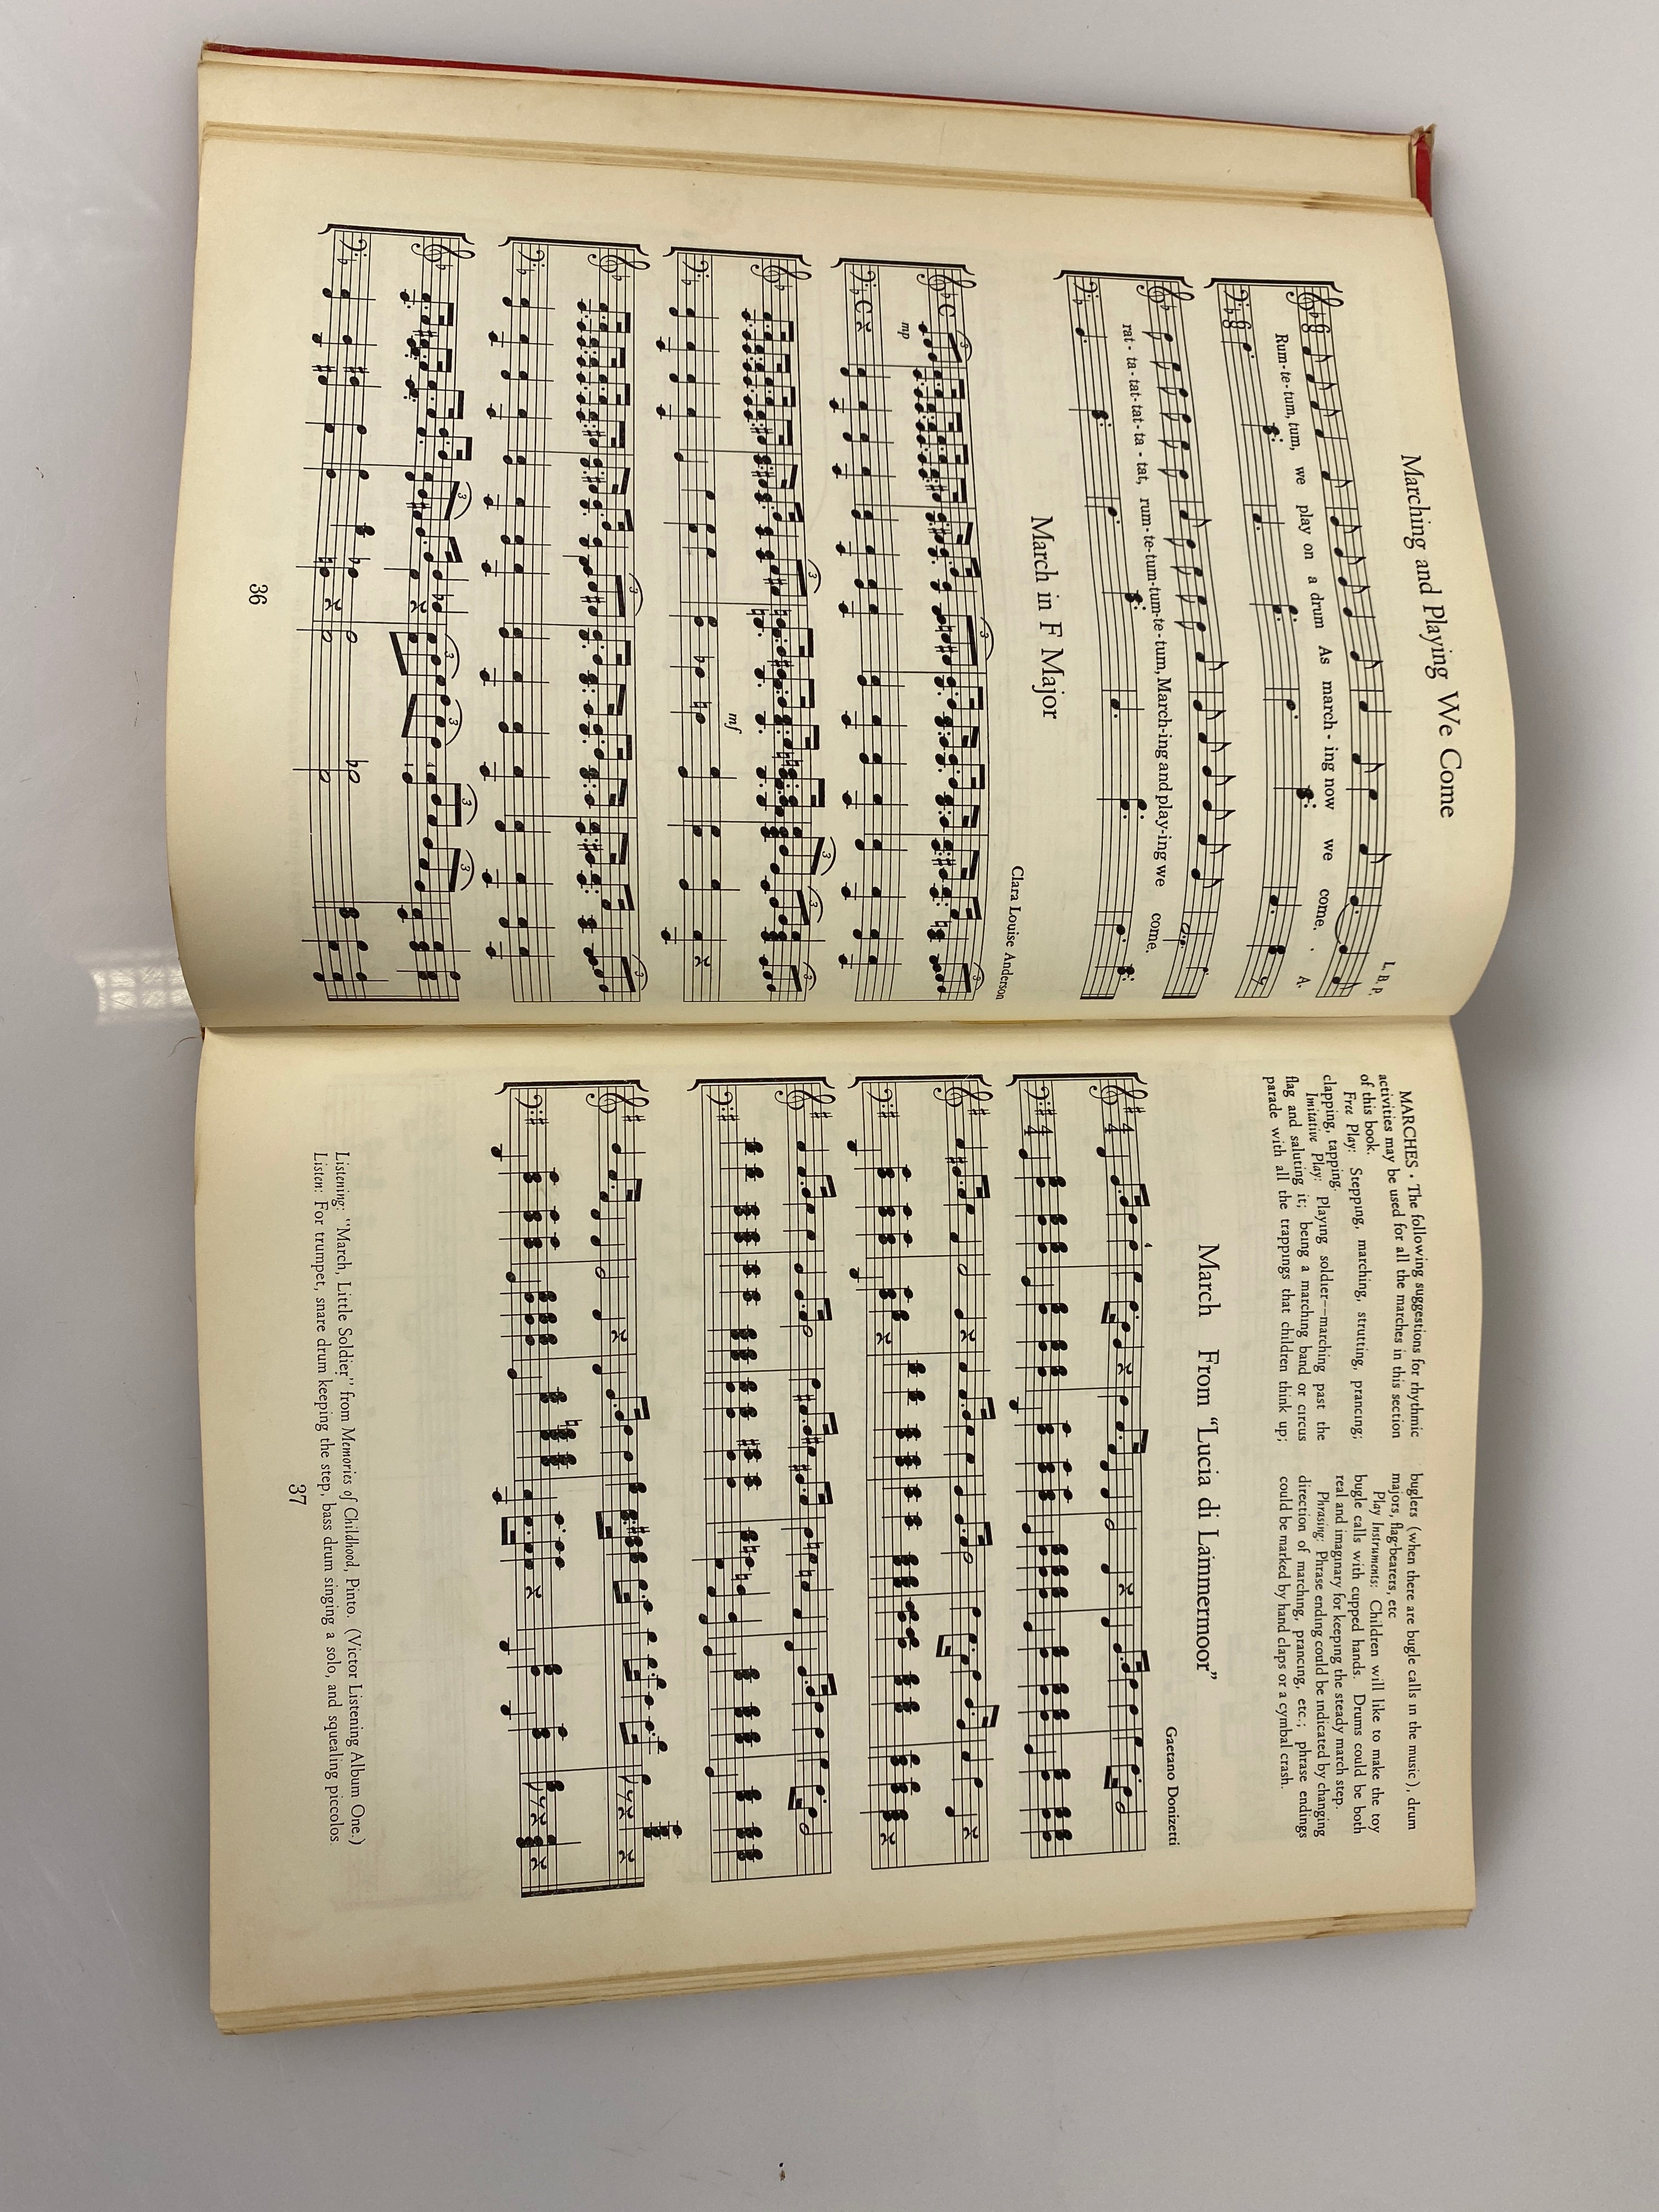 Marching and Playing We Come
L. B. P.
Rum-te-tum, tum, we play on a drum As march-ing now we come. . A.
rat-ta-tat-tat-ta-tat, rum-te-tum-tum-te-tum, March-ing and play-ing we come.
March in F Major
Clara Louise Anderson
mp
3
3
3
3
3
mf
3
3
3
3
3
3
3
3
3
36
MARCHES • The following suggestions for rhythmic
activities may be used for all the marches in this section
of this book.
Free Play: Stepping, marching, strutting, prancing;
clapping, tapping.
Imitative Play: Playing soldier—marching past the
flag and saluting it; being a marching band or circus
parade with all the trappings that children think up;
buglers (when there are bugle calls in the music), drum
majors, flag-bearers, etc
Play Instruments: Children will like to make the toy
bugle calls with cupped hands. Drums could be both
real and imaginary for keeping the steady march step.
Phrasing: Phrase ending could be indicated by changing
direction of marching, prancing, etc.; phrase endings
could be marked by hand claps or a cymbal crash.
March From “Lucia di Lammermoor”
Gaetano Donizetti
4
Listening: “March, Little Soldier” from Memories of Childhood, Pinto. (Victor Listening Album One.)
Listen: For trumpet, snare drum keeping the step, bass drum singing a solo, and squealing piccolos.
37